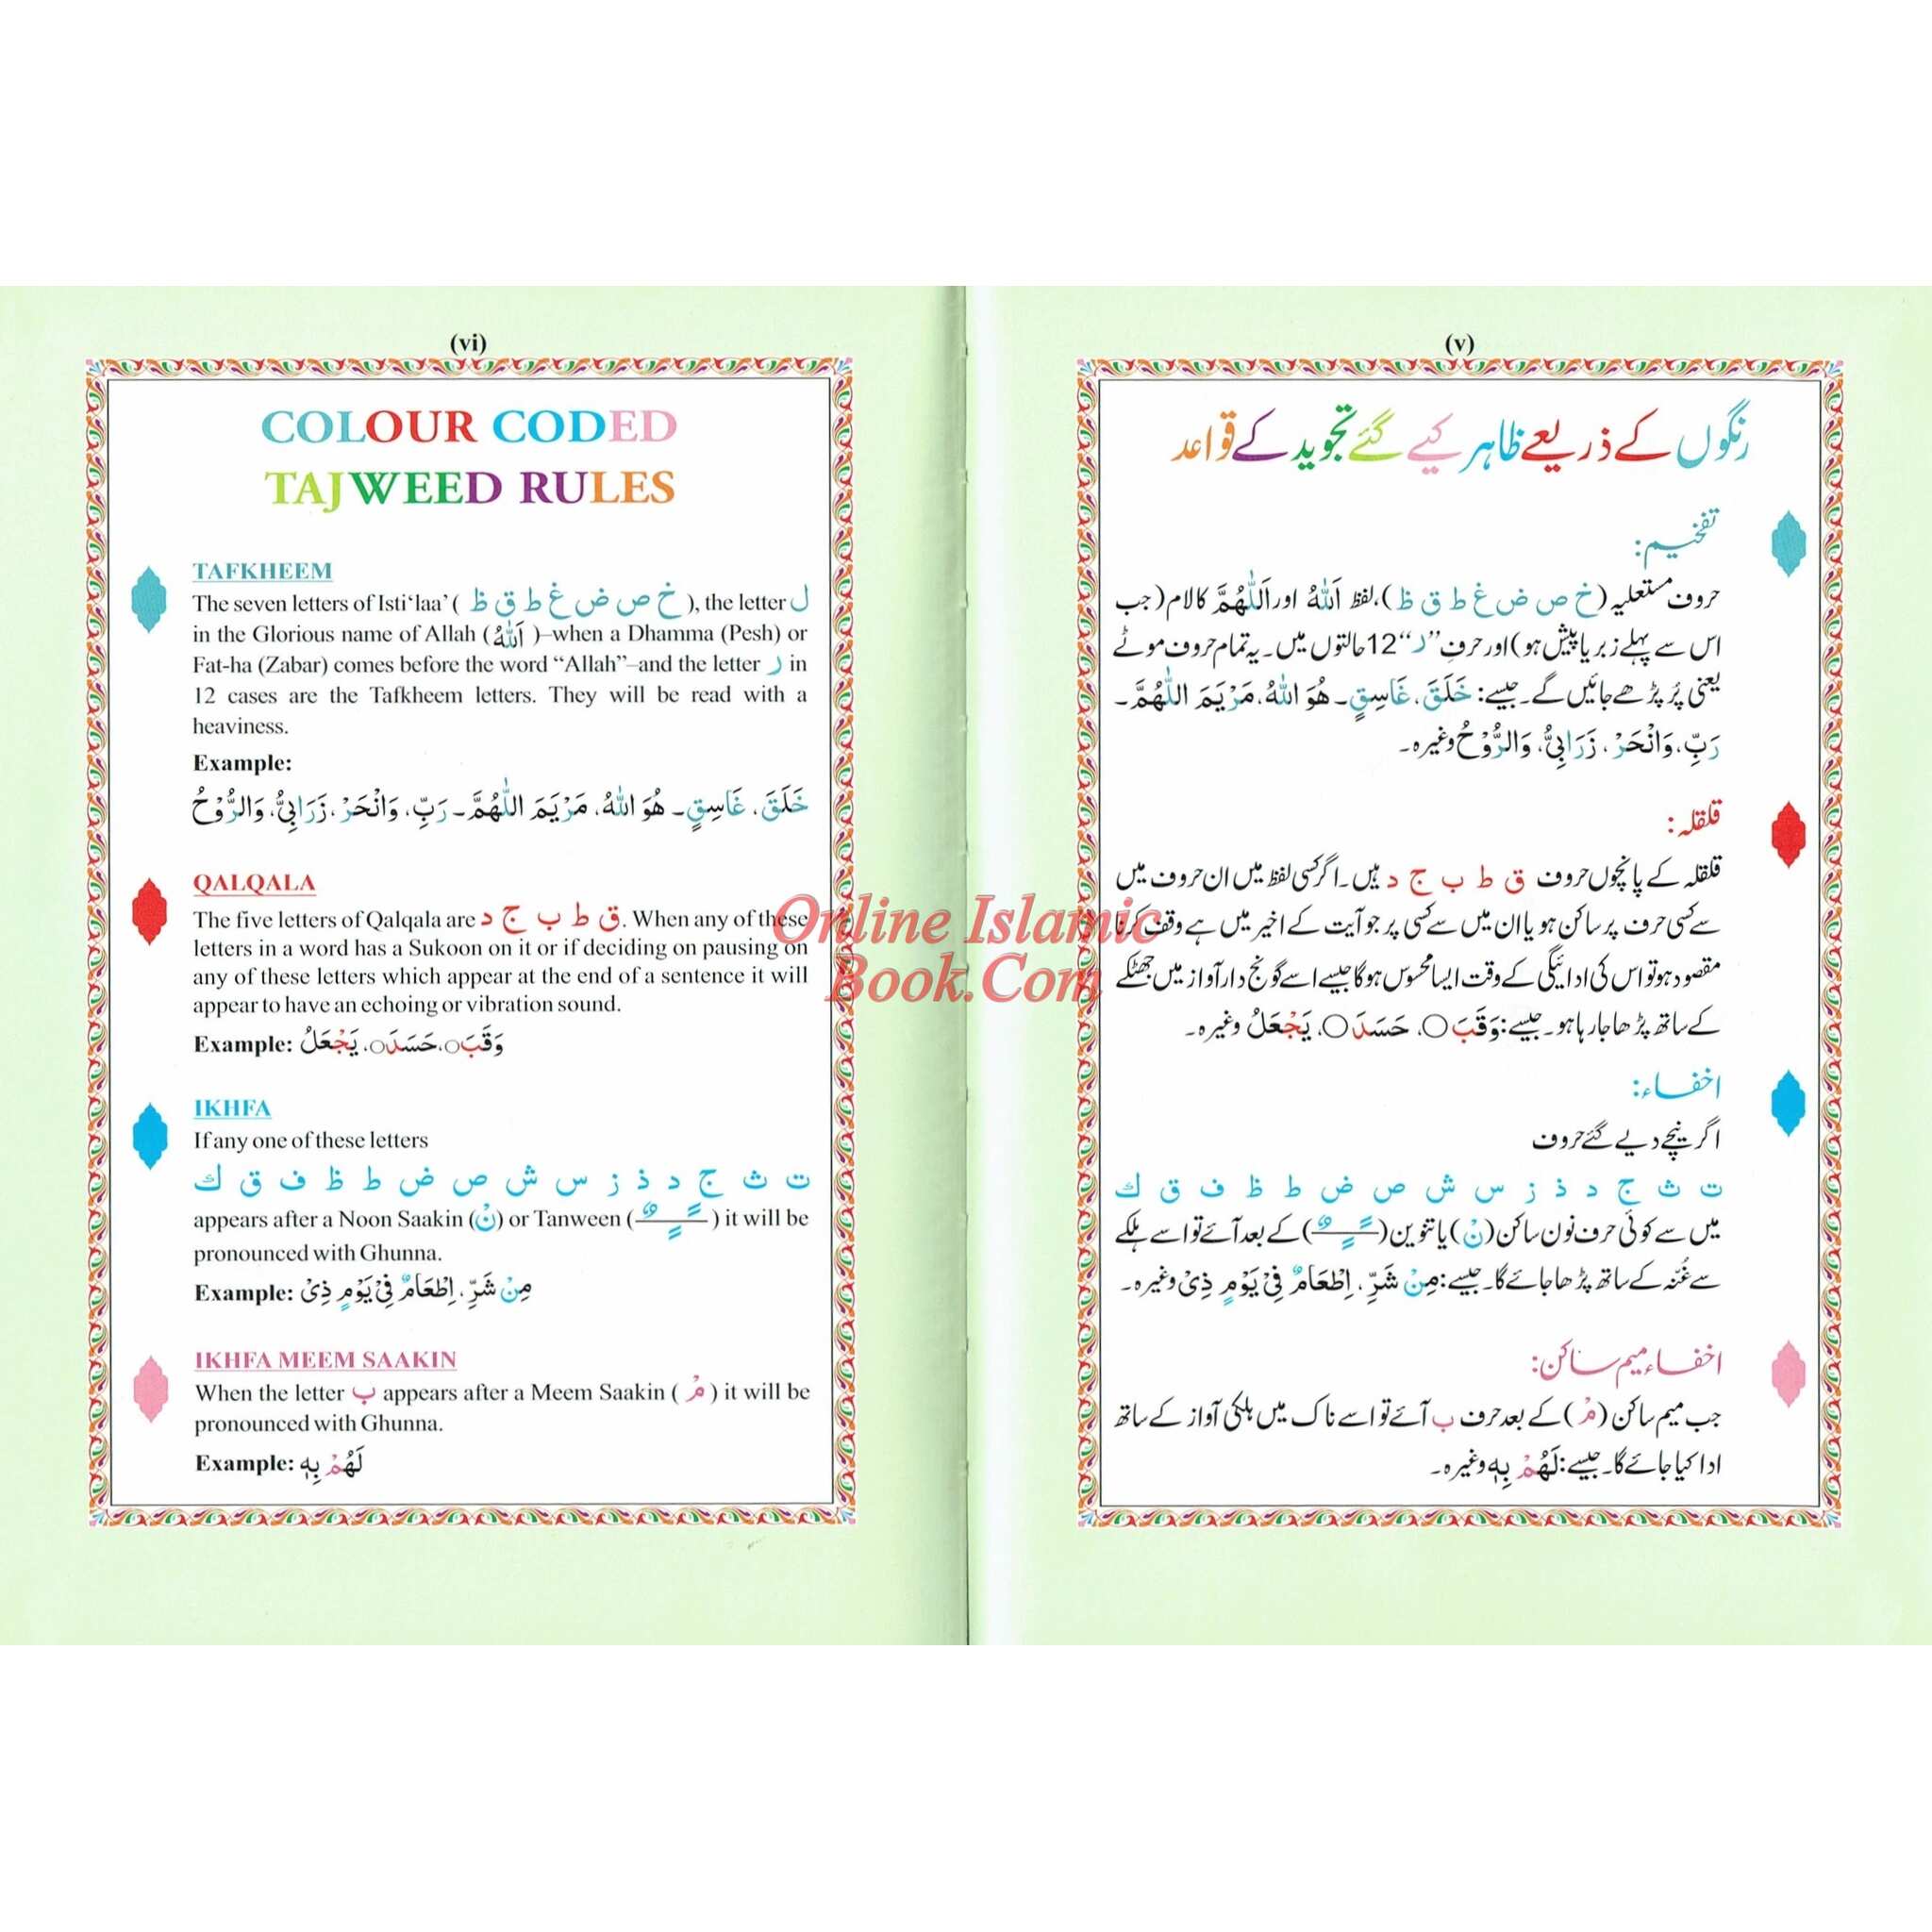 (vi)
COLOUR CODED
TAJWEED RULES
TAFKHEEM
The seven letters of Isti‘laa’ ( خ ص ض غ ط ق ظ ), the letter ل
in the Glorious name of Allah ( اَللّٰهُ )–when a Dhamma (Pesh) or
Fat-ha (Zabar) comes before the word “Allah”–and the letter ر in
12 cases are the Tafkheem letters. They will be read with a
heaviness.
Example:
خَلَقَ، غَاسِقٍ۔ هُوَ اللّٰهُ، مَرْيَمَ اللّٰهُمَّ۔ رَبِّ، وَانْحَرْ، زَرَابِيُّ، وَالرُّوْحُ
QALQALA
The five letters of Qalqala are ق ط ب ج د. When any of these
letters in a word has a Sukoon on it or if deciding on pausing on
any of these letters which appear at the end of a sentence it will
appear to have an echoing or vibration sound.
Example: وَقَبَ○، حَسَدَ○، يَجْعَلُ
IKHFA
If any one of these letters
ت ث ج د ذ ز س ش ص ض ط ظ ف ق ك
appears after a Noon Saakin (نْ) or Tanween ( ـًـٍـٌ ) it will be
pronounced with Ghunna.
Example: مِنْ شَرِّ، اِطْعَامٌ فِيْ يَوْمٍ ذِيْ
IKHFA MEEM SAAKIN
When the letter ب appears after a Meem Saakin ( مْ ) it will be
pronounced with Ghunna.
Example: لَهُمْ بِهٖ
(v)
رنگوں کے ذریعے ظاہر کیے گئے تجوید کے قواعد
تفخیم:
حروف مستعلیہ (خ ص ض غ ط ق ظ)، لفظ اَللّٰهُ اور اَللّٰهُمَّ کا لام (جب
اس سے پہلے زبر یا پیش ہو) اور حرفِ ”ر“ 12 حالتوں میں۔ یہ تمام حروف موٹے
یعنی پُر پڑھے جائیں گے۔ جیسے: خَلَقَ، غَاسِقٍ۔ هُوَ اللّٰهُ، مَرْيَمَ اللّٰهُمَّ۔
رَبِّ، وَانْحَرْ، زَرَابِيُّ، وَالرُّوْحُ وغیرہ۔
قلقلہ:
قلقلہ کے پانچوں حروف ق ط ب ج د ہیں۔ اگر کسی لفظ میں ان حروف میں
سے کسی حرف پر ساکن ہو یا ان میں سے کسی پر جو آیت کے اخیر میں ہے وقف کرنا
مقصود ہو تو اس کی ادائیگی کے وقت ایسا محسوس ہوگا جیسے اسے گونج دار آواز میں جھٹکے
کے ساتھ پڑھا جا رہا ہو۔ جیسے: وَقَبَ○، حَسَدَ○، يَجْعَلُ وغیرہ۔
اخفاء:
اگر نیچے دیے گئے حروف
ت ث ج د ذ ز س ش ص ض ط ظ ف ق ك
میں سے کوئی حرف نون ساکن (نْ) یا تنوین (ـًـٍـٌ) کے بعد آئے تو اسے ہلکے
سے غُنّہ کے ساتھ پڑھا جائے گا۔ جیسے: مِنْ شَرِّ، اِطْعَامٌ فِيْ يَوْمٍ ذِيْ وغیرہ۔
اخفاء میم ساکن:
جب میم ساکن (مْ) کے بعد حرف ب آئے تو اسے ناک میں ہلکی آواز کے ساتھ
ادا کیا جائے گا۔ جیسے: لَهُمْ بِهٖ وغیرہ۔
Online Islamic
Book.Com